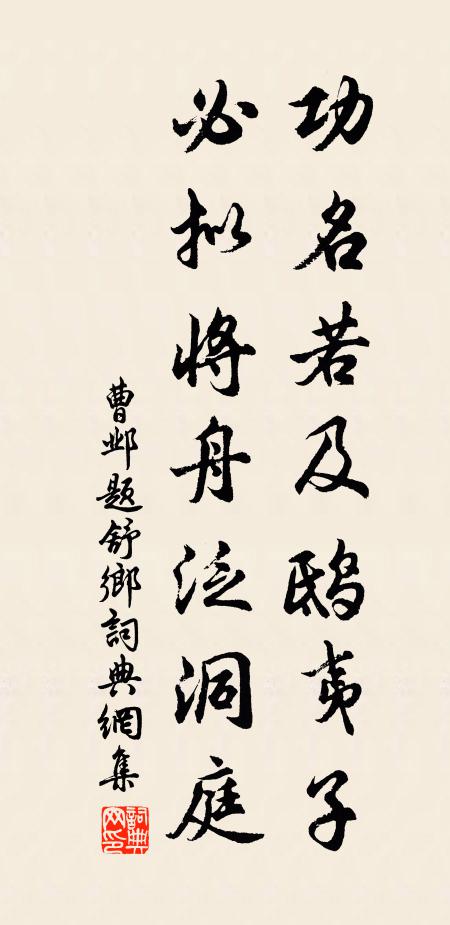 功名若及鸱夷子
必拟将舟泛洞庭
曹邺题舒鄉詞典網集
詞典網印